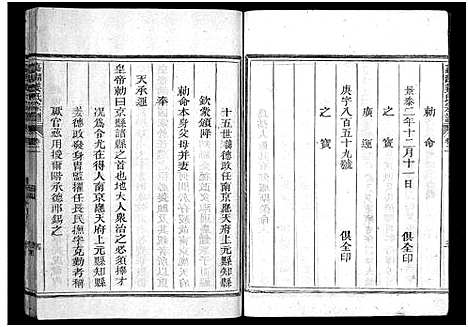 勅命
景泰二年十二月十一日
廣運
之寳　俱全印
庚字八百五十九號
之寳　俱全印
十五世德政任南京應天府上元縣知縣
欽奖領陣
勅命本身父母并妻
奉
天承運
皇帝勅曰京縣諸縣之首也地大人衆治之必須擇才
況爲令尤在得人南京應天府上元縣知縣
德政發身胄監擢任長民撫字克勤者稱
厥官兹用授爾階承德郎錫之